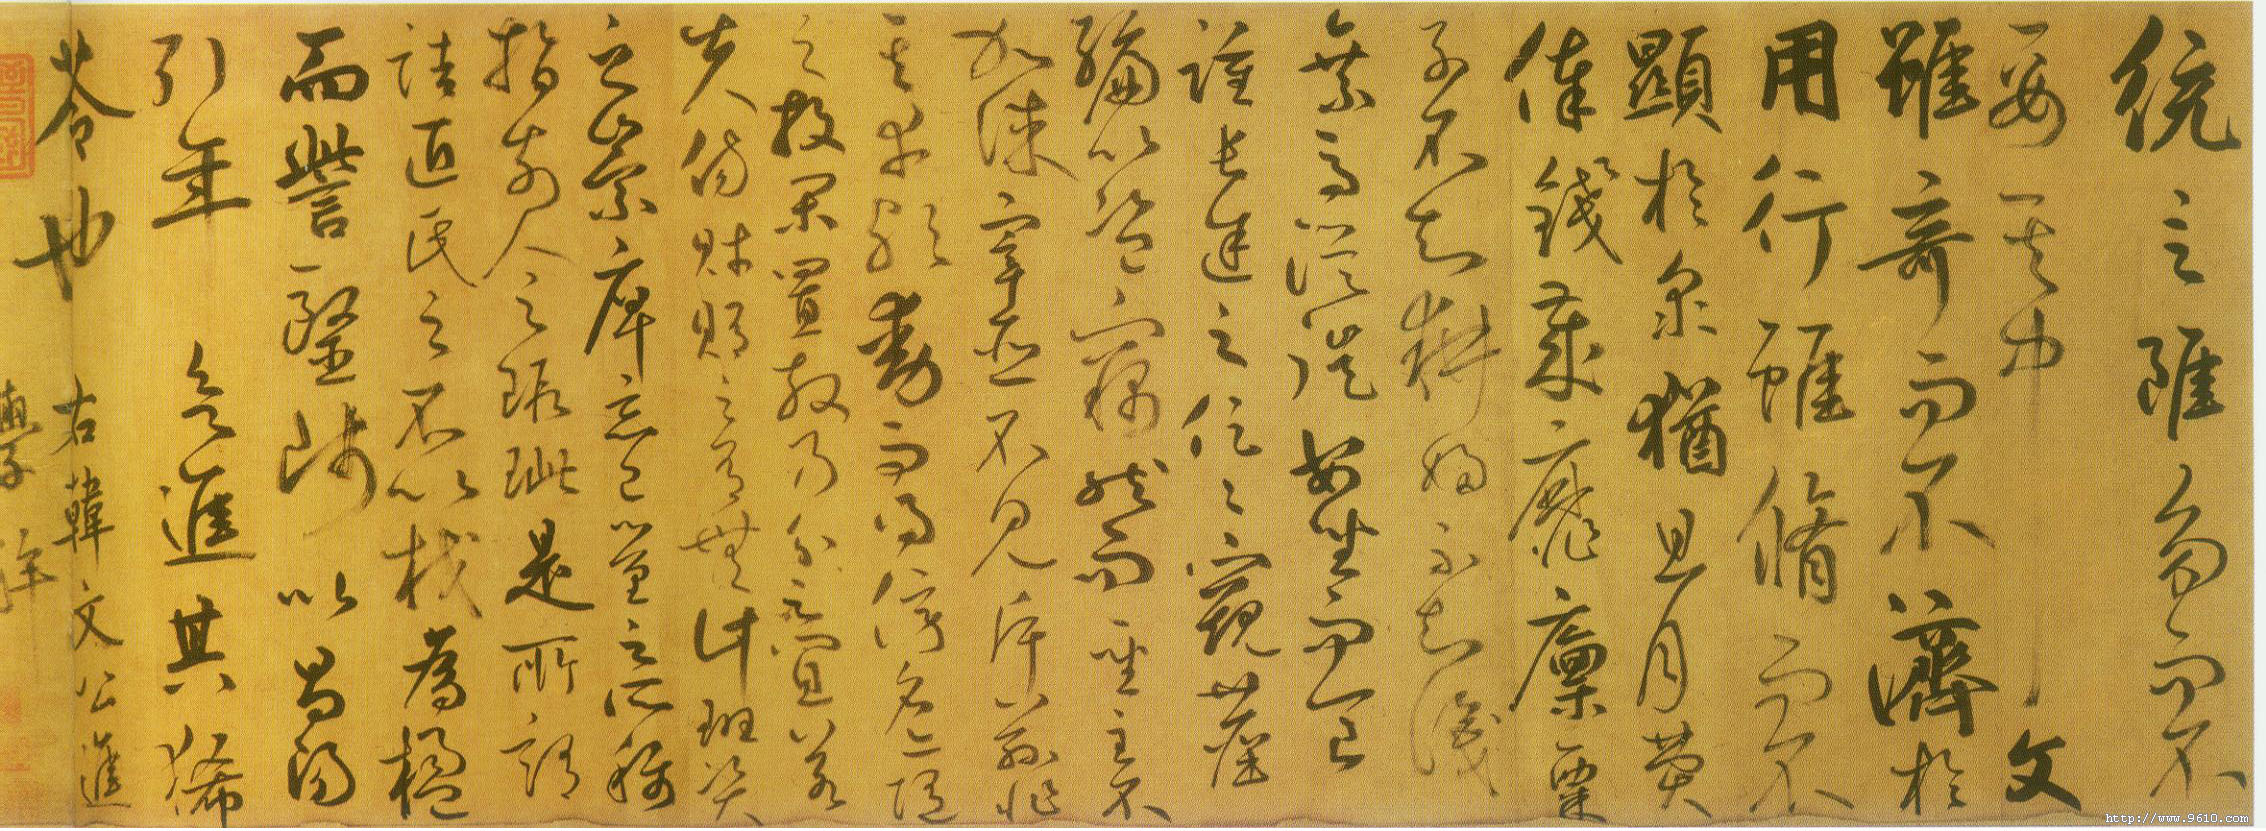 統言雖多而不
要其中文
雖奇而不濟於
用行雖脩而不
顯於衆猶且月費
俸錢歲靡廩粟
子不知耕婦不知織
乘馬從徒安坐而食
踵長途之促促窺陳
編以盜竊然而聖主不
加誅宰臣不見斥茲非
其幸歟動而得謗名亦隨
之投閑置散乃分之宜若
夫商財賄之有無計班資
之崇庳忘己量之所稱
指前人之瑕疵是所謂
詰匠氏之不以杙為楹
而訾醫師以昌陽
引年欲進其豨
苓也 右韓文公進
學解
http://www.9610.com